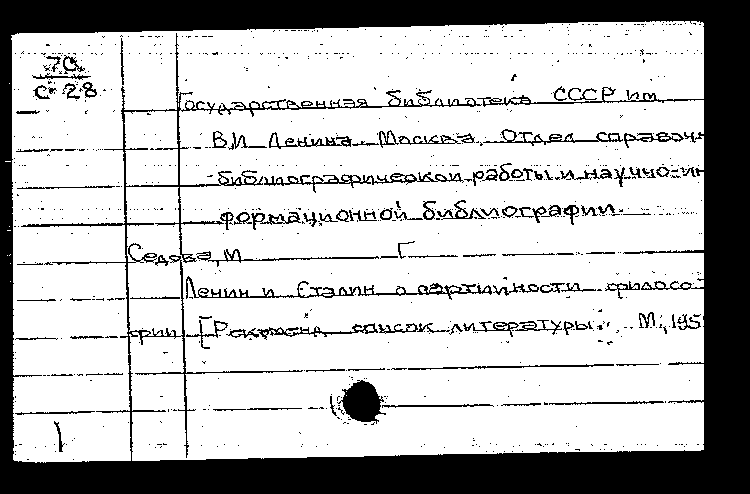 7С
С-28
Государственная библиотека СССР им
В.И Ленина. Москва. Отдел справочн
-библиографической работы и научно-ин
формационной библиографии.
Седова, М Г
Ленин и Сталин о партийности филосо-
фии [Рекоменд список литературы. М, 195